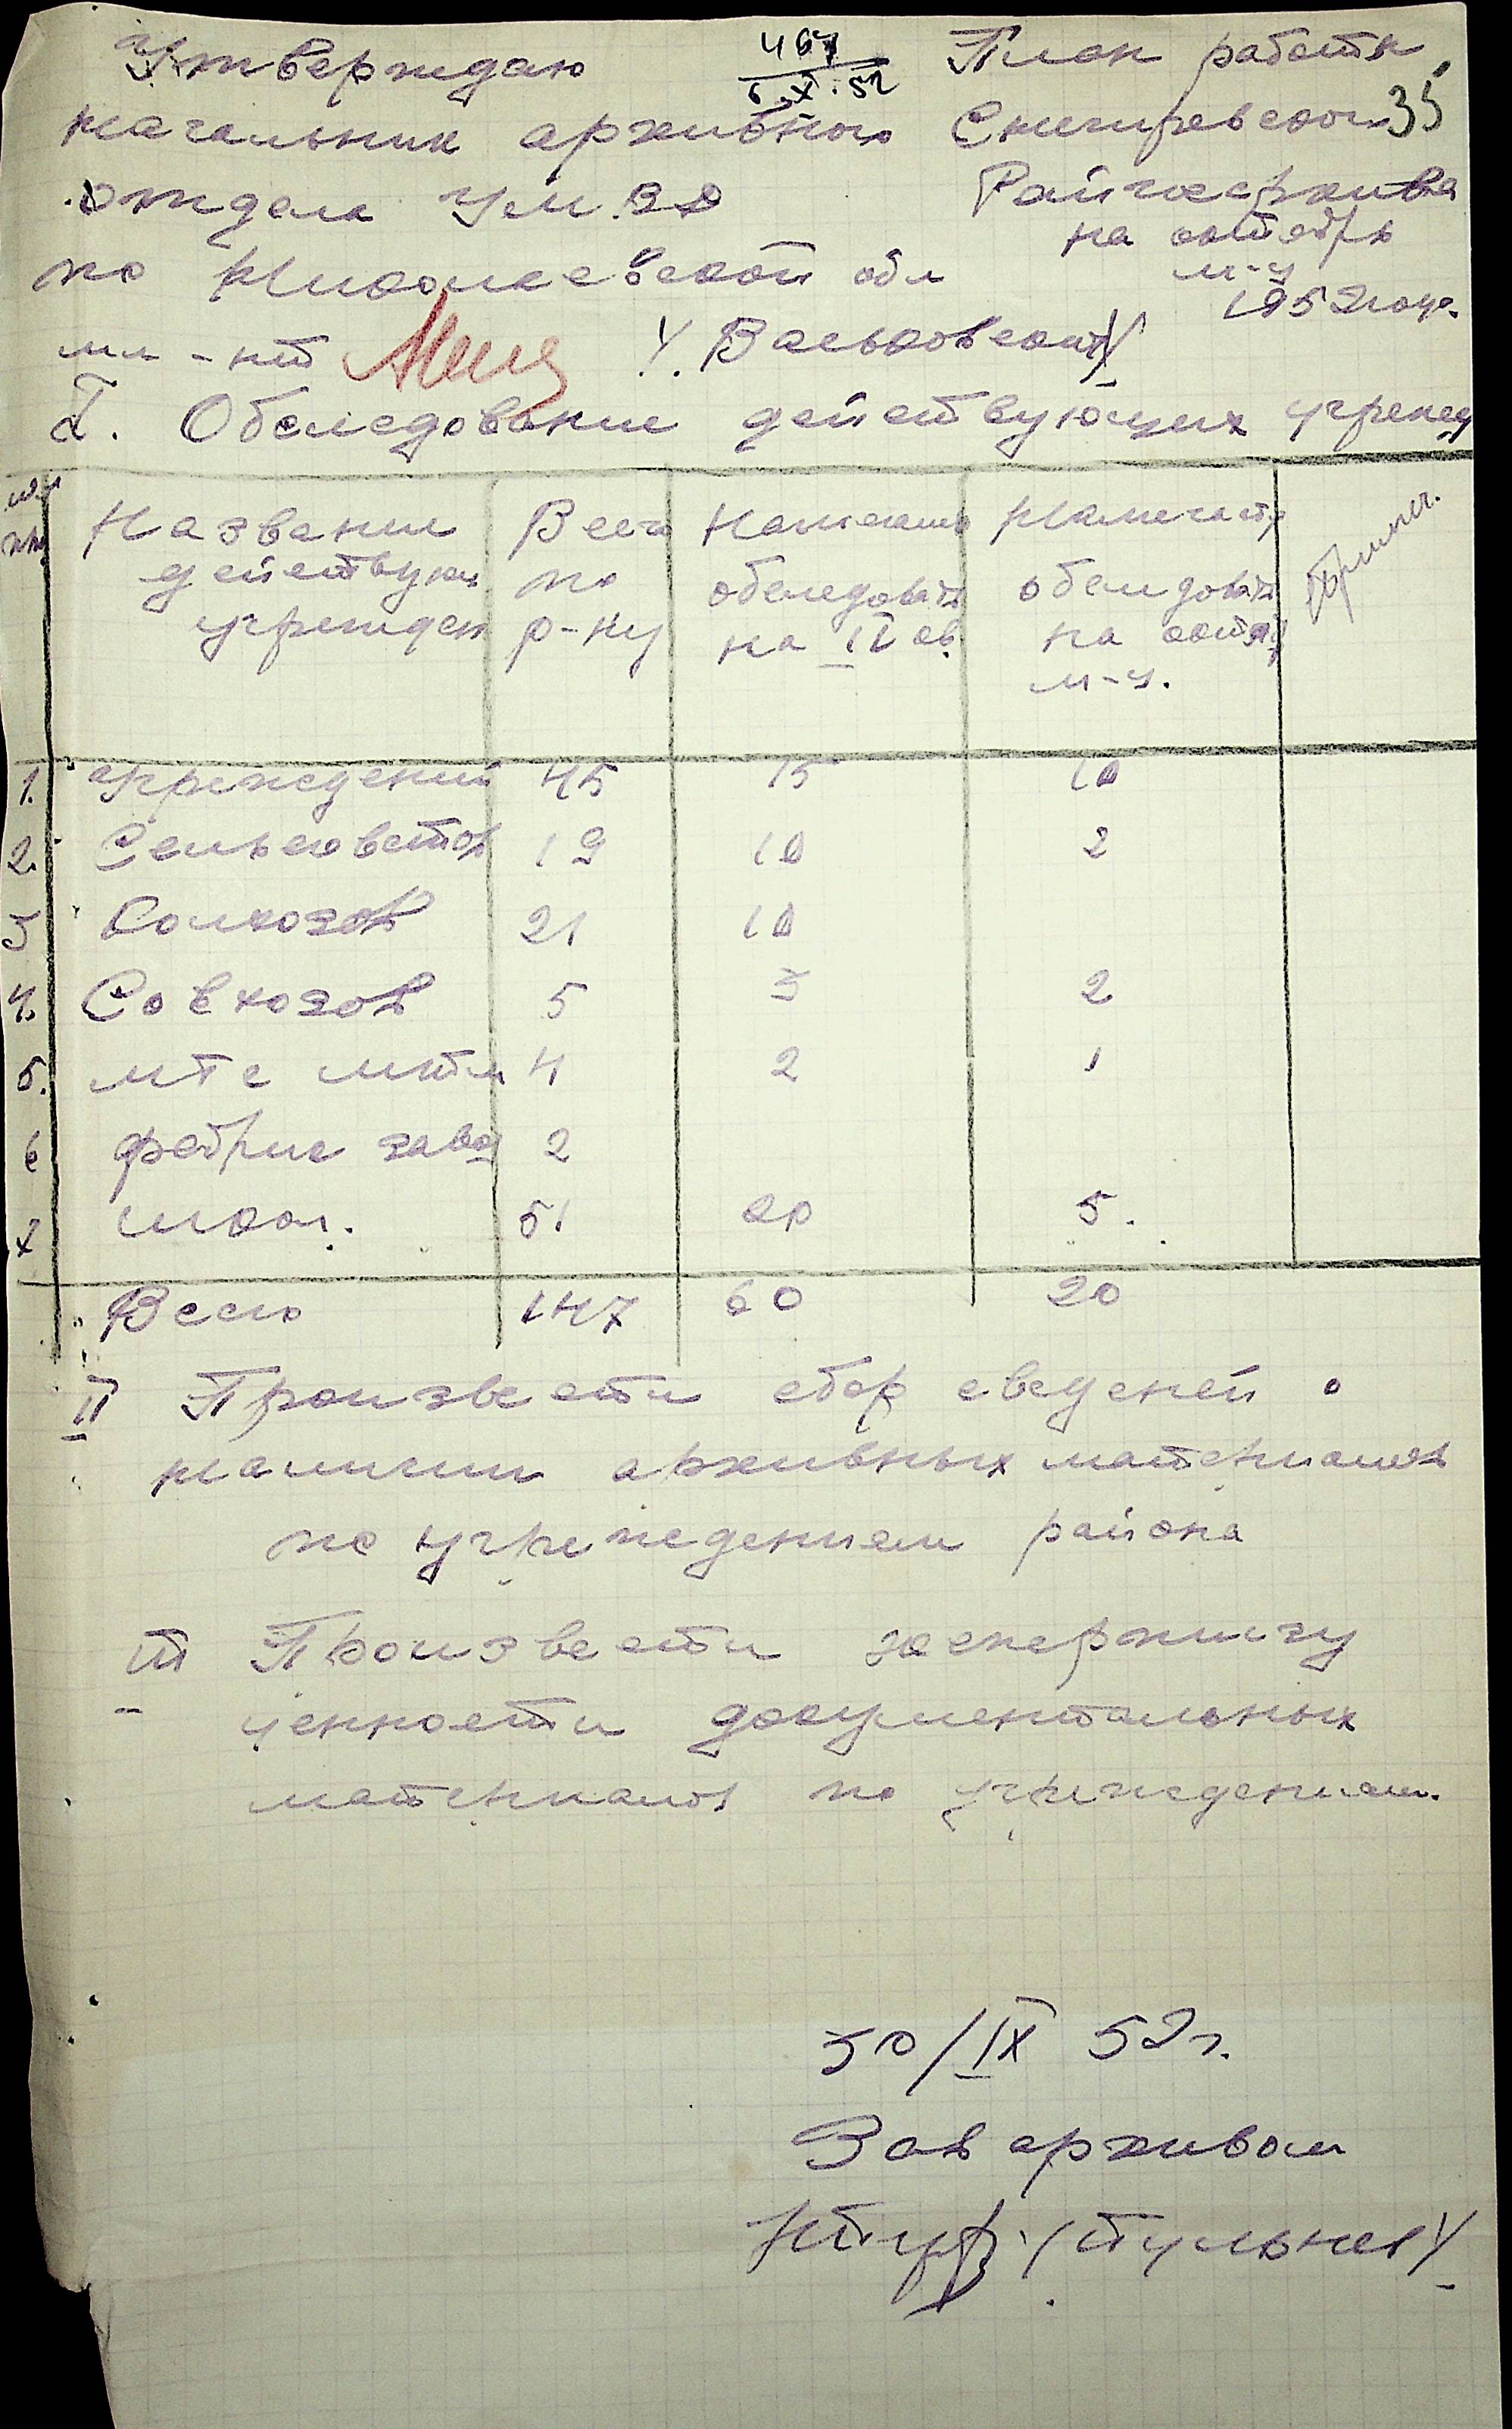 Утверждаю
начальник архивного
отдела УМВД
по Николаевской обл
467
6.X.52
План работы
Снигиревского 35
Райгосархива
на октябрь
м-ц
1952 года.
л-нт /Вальковский/
I. Обследование действующих учрежд
№№ пп
Название действующ учрежден
Всего по р-ну
Намечено обследовать на IV кв.
Намечено обследовать на октяб м-ц.
Примеч.
1. Учреждений 45 15 10
2. Сельсоветов 19 10 2
3 Колхозов 21 10
4. Совхозов 5 3 2
5. МТС 4 2 1
6 фабрик завод 2
7 школ. 51 20 5.
Всего 147 60 20
II Произвести сбор сведеней о
наличии архивных материалов
по учреждениям района
III Произвести экспертизу
ценности документальных
материалов по учреждениям.
30/IX 52 г.
Зав архивом